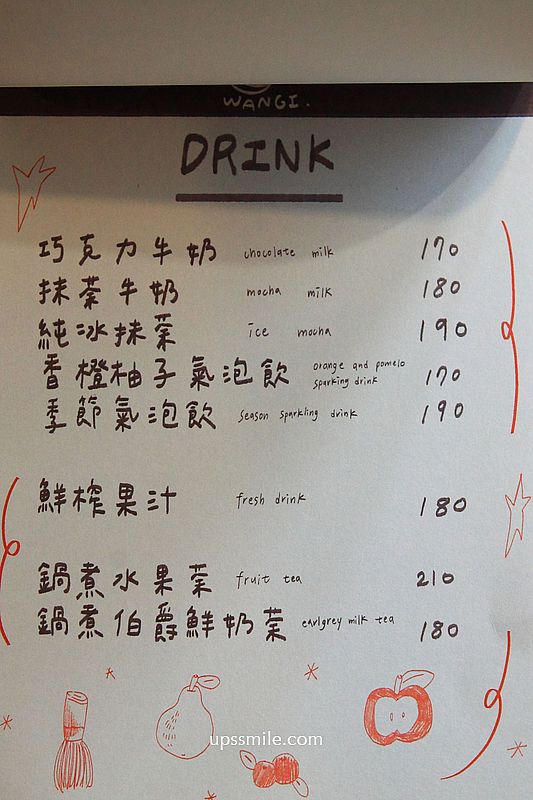 WANGI.
DRINK
巧克力牛奶 chocolate milk 170
抹茶牛奶 mocha milk 180
純冰抹茶 ice mocha 190
香橙柚子氣泡飲 orange and pomelo sparking drink 170
季節氣泡飲 season sparkling drink 190
鮮榨果汁 fresh drink 180
鍋煮水果茶 fruit tea 210
鍋煮伯爵鮮奶茶 earlgrey milk tea 180
upssmile.com